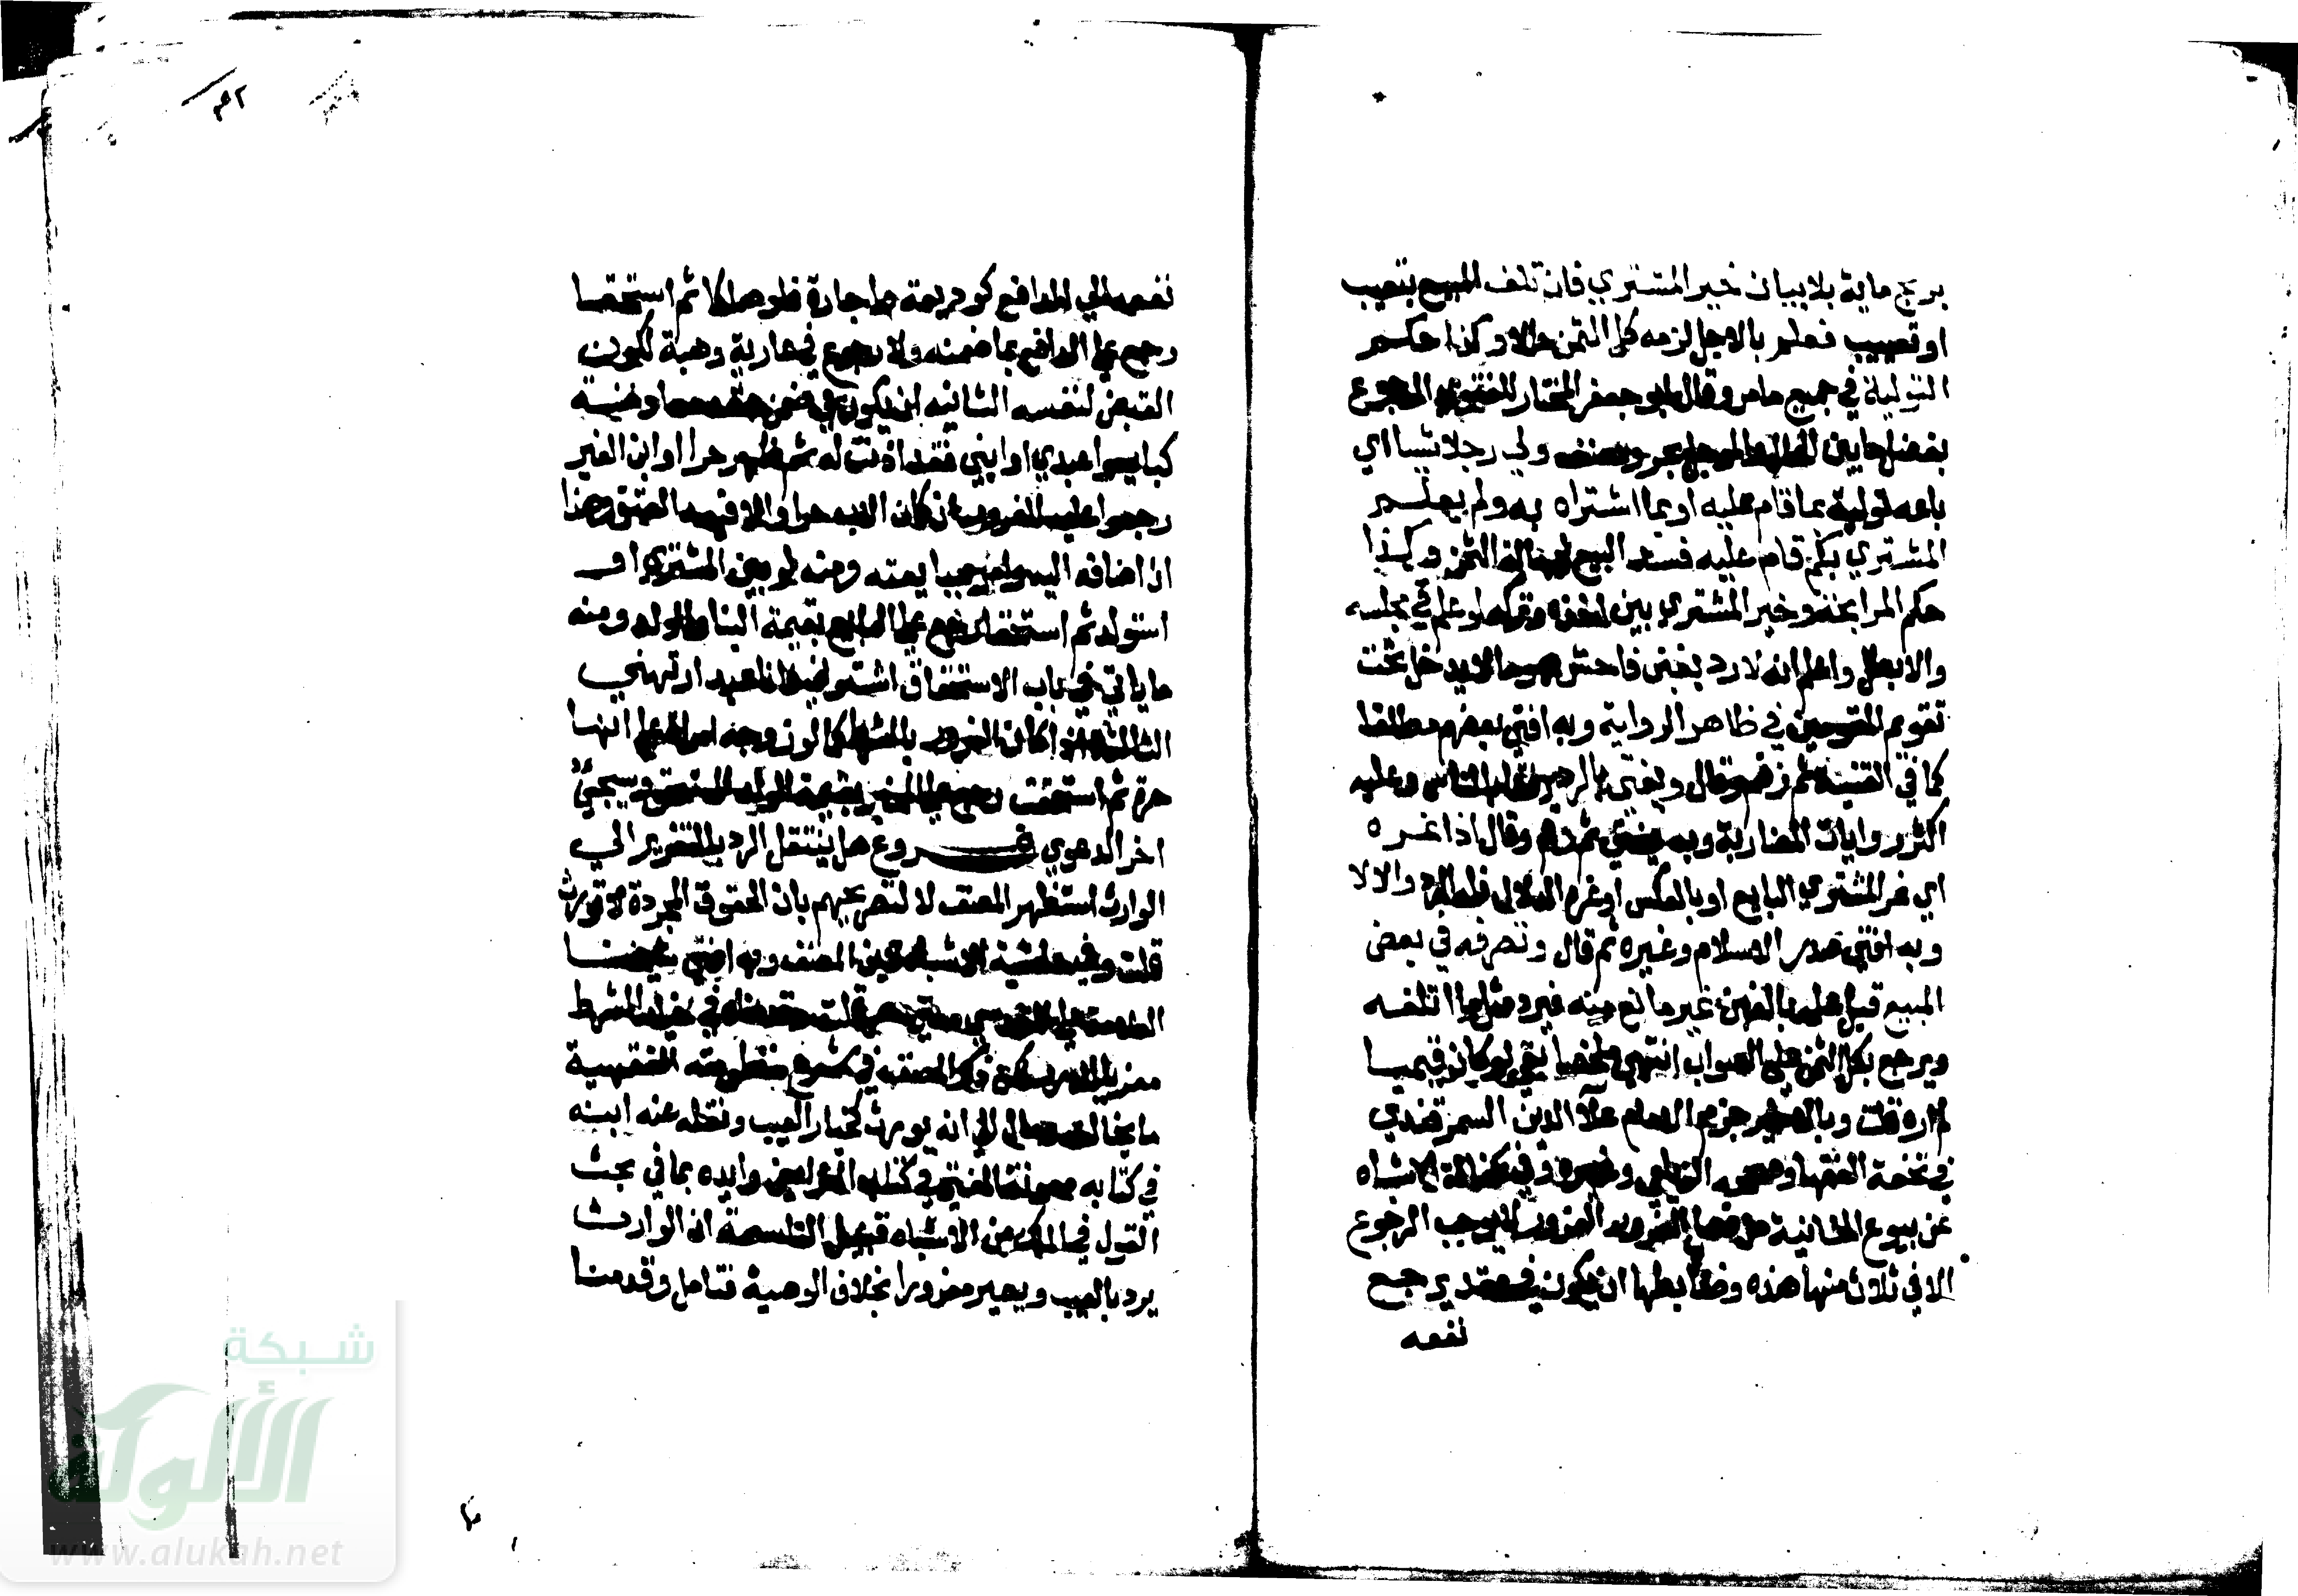 بربح ماية بلا بيان خير المشتري فان تلف المبيع بتعيب
او تعييب فعلم بالاجل لزمه كل الثمن حالا وكذا حكم
التولية في جميع ما مر وقال ابو جعفر المختار للفتوى الرجوع
بفضل ما بين الحال والموجل بحر ومصنف ولي رجلا شيا اي
باعه تولية بما قام عليه او بما اشتراه به ولم يعلم
المشتري بكم قام عليه فسد البيع لجهالة الثمن وكذا
حكم المرابحة وخير المشتري بين اخذه وتركه لو علم في مجلسه
والا بطل واعلم انه لا رد بغبن فاحش هو ما لا يدخل تحت
تقويم المقومين في ظاهر الرواية وبه افتى بعضهم مطلقا
كما في القنية ثم رقم وقال ويفتى بالرد رفقا بالناس وعليه
اكثر روايات المضاربة وبه يفتى ثم رقم وقال اذا غره
اي غر المشتري البايع او بالعكس او غره الدلال فله الرد والا لا
وبه افتى صدر الاسلام وغيره ثم قال وتصرفه في بعض
المبيع قبل علمه بالغبن غير مانع منه فيرد مثل ما اتلفه
ويرجع بكل الثمن على الصواب انتهى ملخصا بقي لو كان قيميا
لم اره قلت وبالاخير جزم الامام علا الدين السمرقندي
في تحفة الفقها وصححه الزيلعي وغيره وفي كفالة الاشباه
عن بيوع الخانية من فصل الغرور الغرور لا يوجب الرجوع
الا في ثلاث منها هذه وضابطها ان يكون في عقد يرجع
نفعه
نفعه الى الدافع كوديعة واجارة فلو هلكا ثم استحقا
رجع على الدافع بما ضمنه ولا رجوع في عارية وهبة لكون
القبض لنفسه الثانيه ان يكون في ضمن عقد معاوضة
كبايعوا عبدي او ابني فقد اذنت له ثم ظهر حرا او ابن الغير
رجعوا عليه للغرور ان كان الاب حرا والا فبعد العتق وهذا
ان اضافه اليه وامر بمبايعته ومنه لو بنى المشتري او
استولد ثم استحقا رجع على البايع بقيمة البنا والولد ومنه
ما ياتي في باب الاستحقاق اشترني فانا عبد ارتهني
الثالثة اذا كان الغرور بالشرط كما لو زوجه امراة على انها
حرة ثم استحقت رجع على المخبر بقيمة الولد المستحق وسيجيء
اخر الدعوي فروع هل ينتقل الرد بالتغرير الى
الوارث استظهر المصنف لا لتصريحهم بان الحقوق المجردة لا تورث
قلت وفي حاشية الاشباه لابن المصنف وبه افتى شيخنا
العلامة علي المقدسي مفتي مصر قلت وقدمناه في خيار الشرط
معزيا للدرر لكن ذكر المصنف في شرح منظومته الفقهية
ما يخالفه ومال الى انه يورث كخيار العيب ونقله عنه ابنه
في كتابه معونة المفتي في كتاب الفرايض وايده بما في بحث
القول في الملك من الاشباه قبيل التاسعة ان الوارث
يرد بالعيب ويصير مغرورا بخلاف الوصية فتامل وقدمنا
شبكة
الألوكة
www.alukah.net